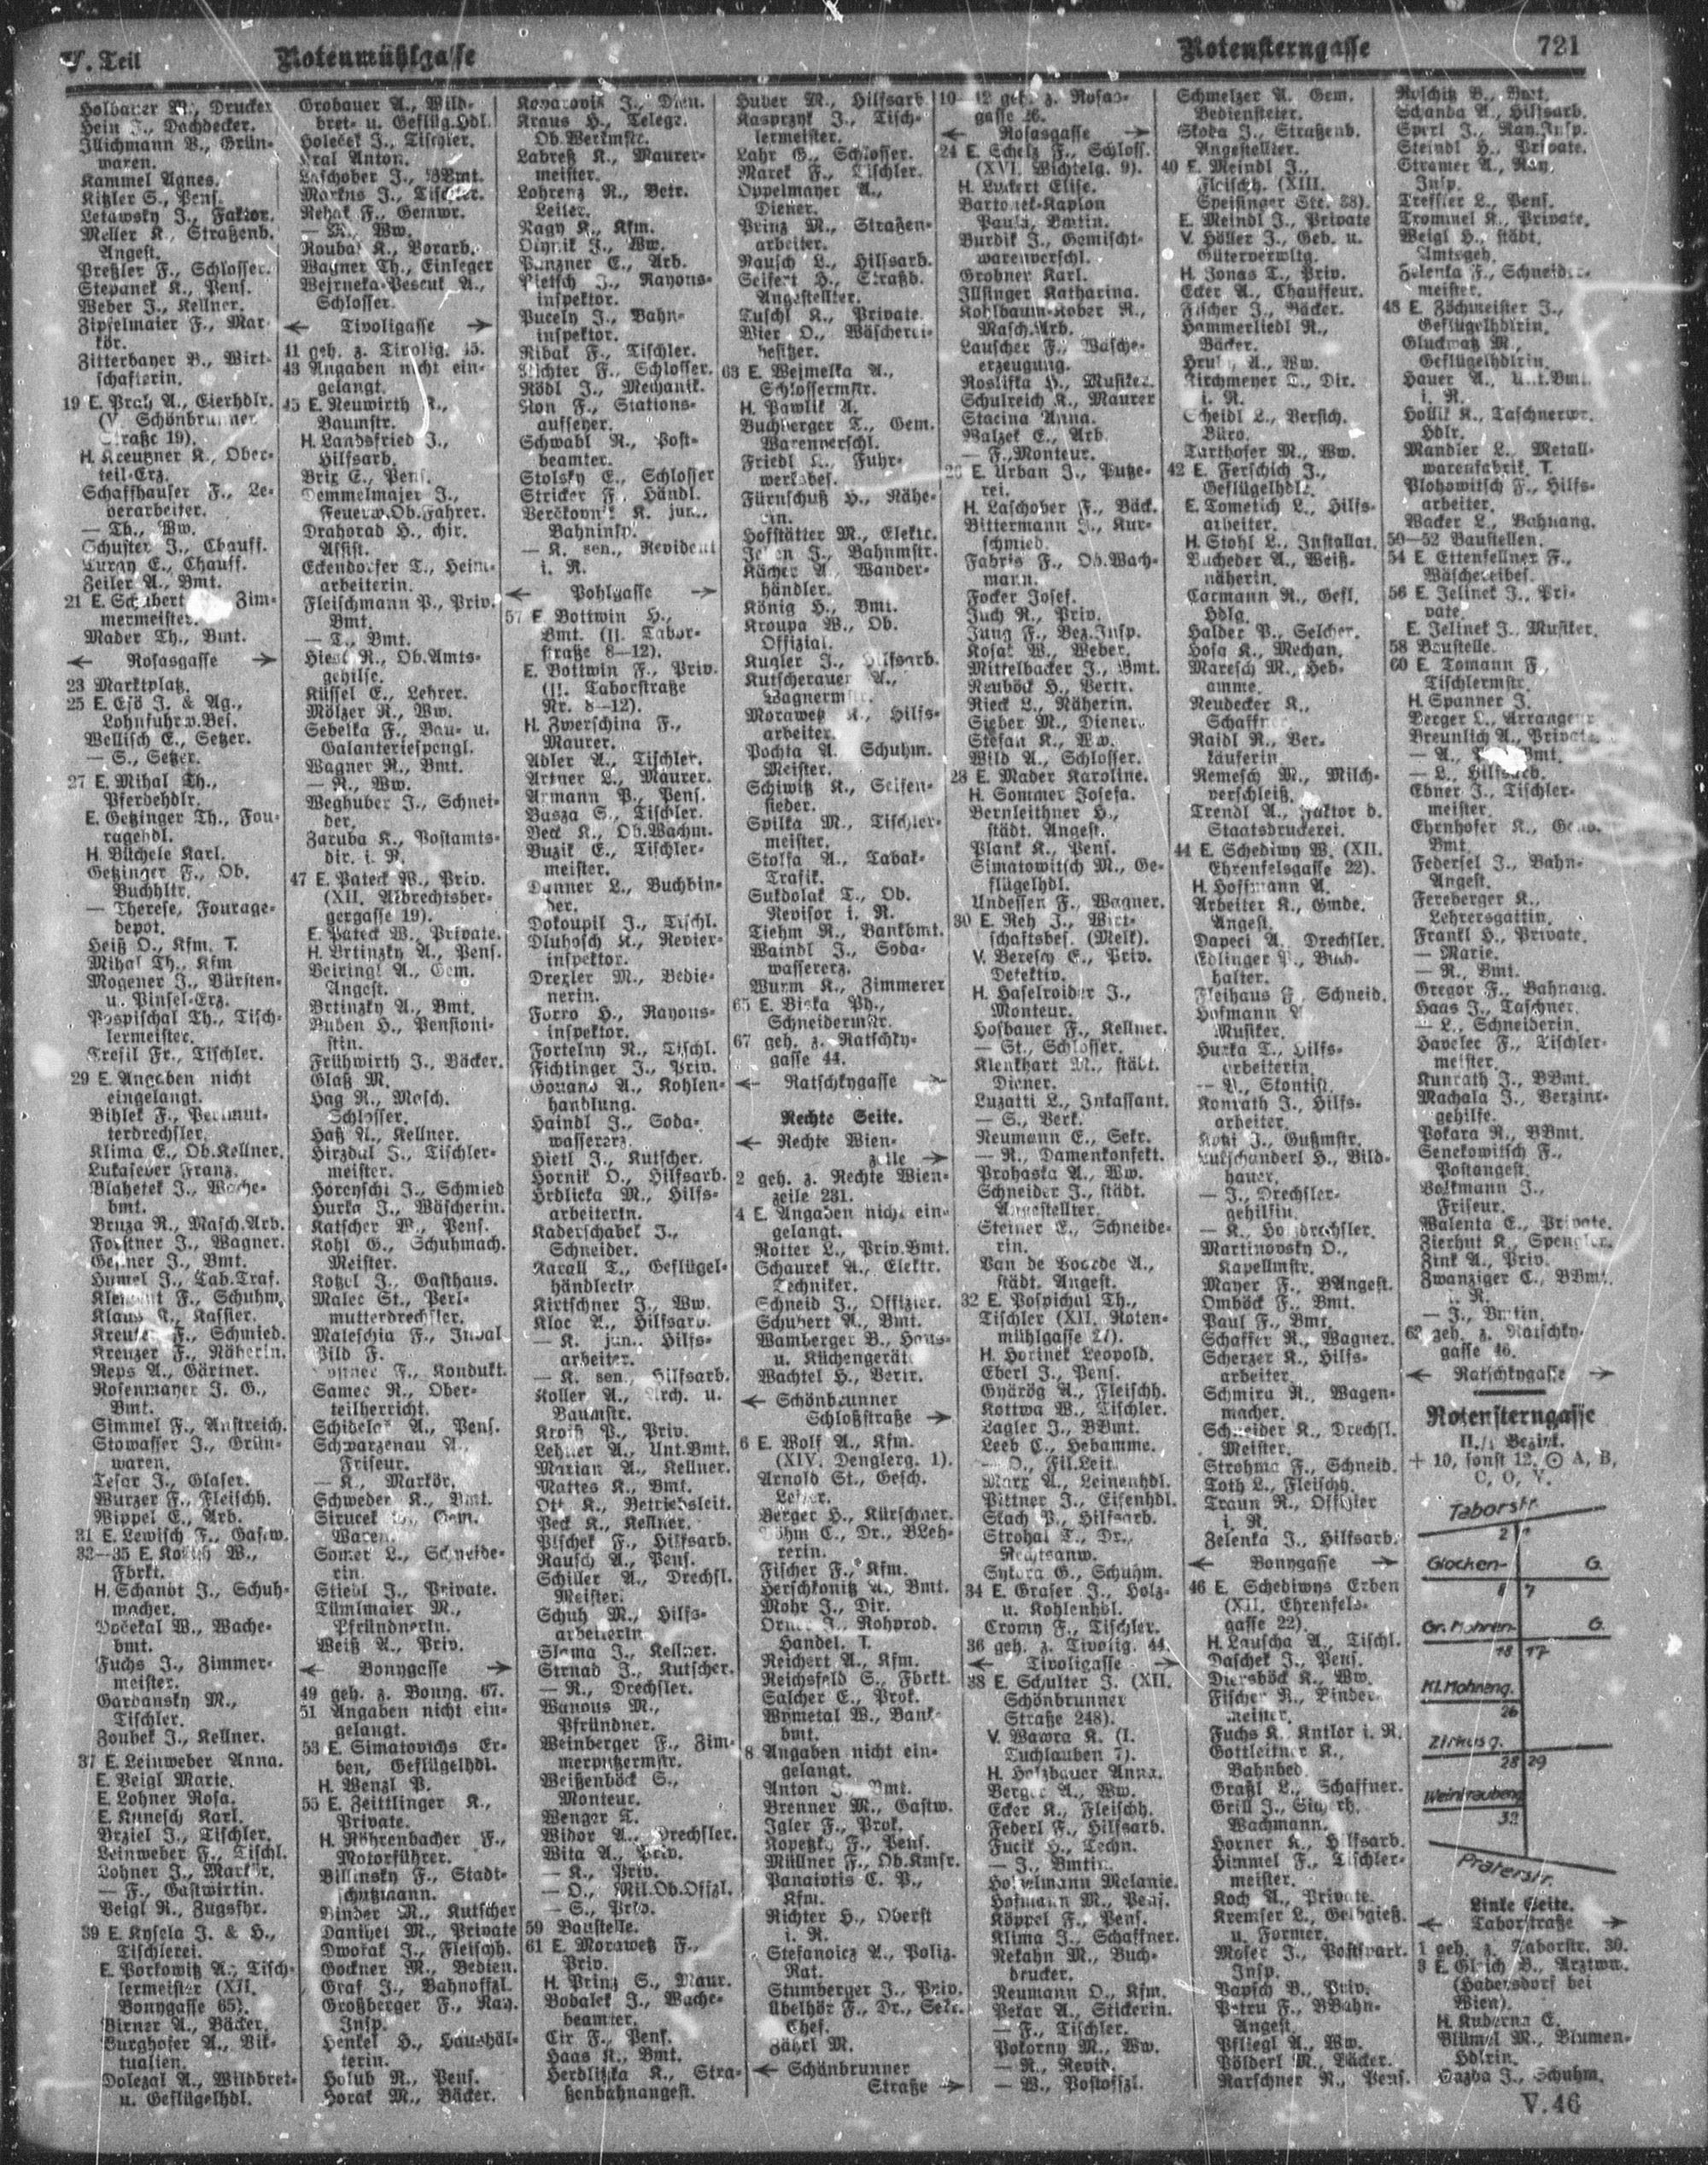 V. Teil
Rotenmühlgasse
Rotensterngasse
721
Holbauer M., Drucker
Hein J., Dachdecker.
Illichmann V., Grün-
waren.
Kammel Agnes.
Kitzler S., Pens.
Letawsky J., Faktor.
Meller K., Straßenb.
Angest.
Preßler F., Schlosser.
Stepanek K., Pens.
Weber J., Kellner.
Zipfelmaier F., Mar-
kör.
Zitterbayer B., Wirt-
schafterin.
19 E. Prah A., Eierhdlr.
(V. Schönbrunner
Straße 19).
H. Kreutzner K., Ober-
teil-Erz.
Schaffhauser F., Le-
derarbeiter.
— Th., Ww.
Schuster J., Chauff.
Turay E., Chauff.
Zeiler A., Bmt.
21 E. Schubert Zim-
mermeister.
Mader Th., Bmt.
← Rosasgasse →
23 Marktplatz.
25 E. Esö J. & Ag.,
Lohnfuhrw.Bes.
Wellisch E., Setzer.
— S., Setzer.
27 E. Mihal Th.,
Pferdehdlr.
E. Getzinger Th., Fou-
ragehdl.
H. Büchele Karl.
Getzinger F., Ob.
Buchhltr.
— Therese, Fourage-
depot.
Heiß O., Kfm. T.
Mihal Th., Kfm.
Mogener J., Bürsten-
u. Pinsel-Erz.
Pospischal Th., Tisch-
lermeister.
Tresil Fr., Tischler.
29 E. Angaben nicht
eingelangt.
Bihlek F., Perlmut-
terdrechsler.
Klima E., Ob.Kellner.
Lukaseder Franz.
Blahetek J., Wache-
bmt.
Bruza R., Masch.Arb.
Forstner J., Wagner.
Geßner J., Bmt.
Humel J., Tab.Traf.
Klement F., Schuhm.
Klaus K., Kassier.
Kreuzer F., Schmied.
Kreuzer F., Näherin.
Reps A., Gärtner.
Rosenmayer J. G.,
Bmt.
Simmel F., Anstreich.
Stowasser J., Grün-
waren.
Tesar J., Glaser.
Wurzer F., Fleischh.
Wippel E., Arb.
31 E. Lewisch F., Gastw.
33—35 E. W.,
Fbrkt.
H. Schandt J., Schuh-
macher.
Dočekal W., Wache-
bmt.
Fuchs J., Zimmer-
meister.
Gardansky M.,
Tischler.
Zoubek J., Kellner.
37 E. Leinweber Anna.
E. Veigl Marie.
E. Lohner Rosa.
E. Kunesch Karl.
Brziel J., Tischler.
Leinweber F., Tischl.
Lohner J., Markör.
— F., Gastwirtin.
Veigl R., Zugsfhr.
39 E. Kysela J. & H.,
Tischlerei.
E. Porkowitz A., Tisch-
lermeister (XII.
Bonygasse 65).
Birner A., Bäcker.
Burghofer A., Vik-
tualien.
Dolezal A., Wildbret-
u. Geflügelhdl.
Grobauer A., Wild-
bret- u. Geflüg.Hdl.
Holeček J., Tischler.
Kral Anton.
Laschober J., BBmt.
Markus J., Tischler.
Rehak F., Gemwr.
— R., Ww.
Roubal K., Vorarb.
Wagner Th., Einleger
Wejrneka-Pescut A.,
Schlosser.
← Tivoligasse →
41 geh. z. Tivolig. 45.
43 Angaben nicht ein-
gelangt.
45 E. Neuwirth
Baumstr.
H. Landsfried J.,
Hilfsarb.
Brix E., Pens.
Demmelmajer J.,
Feuerw.Ob.Fahrer.
Drahorad H., chir.
Assist.
Eckendorfer T., Heim-
arbeiterin.
Fleischmann P., Priv.
Bmt.
— T., Bmt.
Hiesl R., Ob.Amts-
gehilfe.
Küssel E., Lehrer.
Mölzer R., Ww.
Sebelka F., Bau- u.
Galanteriespengl.
Wagner R., Bmt.
— R., Ww.
Weghuber J., Schnei-
der.
Zaruba K., Postamts-
dir. i. R.
47 E. Pateck W., Priv.
(XII. Albrechtsber-
gergasse 19).
E. Pateck W., Private.
H. Brtinzky A., Pens.
Beiringl A., Gem.
Angest.
Brtinzky A., Bmt.
Buden H., Pensioni-
stin.
Frühwirth J., Bäcker.
Glaß M.
Hag R., Masch.
Schlosser.
Haß A., Kellner.
Hirzdal J., Tischler-
meister.
Horeyschi J., Schmied
Hurka J., Wäscherin.
Katscher W., Pens.
Kohl G., Schuhmach.
Meister.
Kotzel J., Gasthaus.
Malec St., Perl-
mutterdrechsler.
Maleschia F., Inval.
Pild F.
F., Kondukt.
Samec R., Ober-
teilherricht.
Schibeler A., Pens.
Schwarzenau A.,
Friseur.
— K., Markör.
Schweder K., Bmt.
Sirucek Gem.
Waren.
Somer L., Schneide-
rin.
Stiedl J., Private.
Tümlmaier M.,
Pfründnerin.
Weiß A., Priv.
← Bonygasse →
49 geh. z. Bonyg. 67.
51 Angaben nicht ein-
gelangt.
53 E. Simatovichs Er-
ben, Geflügelhdl.
H. Wenzl P.
55 E. Zeittlinger K.,
Private.
H. Röhrenbacher F.,
Motorführer.
Billinsky F., Stadt-
schutzmann.
Binder M., Kutscher
Danihel M., Private
Dwořak J., Fleischh.
Gockner M., Bedien.
Graf J., Bahnoffzl.
Großberger F., Ray.
Insp.
Henkel H., Haushäl-
terin.
Holub R., Pens.
Horak M., Bäcker.
Kovarovis J., Dien.
Kraus H., Telegr.
Ob.Werkmstr.
Labreß K., Maurer-
meister.
Lohrenz R., Betr.
Leiter.
Nagy K., Kfm.
Olynik J., Ww.
Panzner E., Arb.
Pietsch J., Rayons-
inspektor.
Pucely J., Bahn-
inspektor.
Ribak F., Tischler.
Richter F., Schlosser.
Rödl J., Mechanik.
Ron F., Stations-
aufseher.
Schwabl R., Post-
beamter.
Stolsky E., Schlosser
Stricker F., Händl.
K. jun.,
Bahninsp.
— K. sen., Revident
i. R.
← Pohlgasse →
57 E. Bottwin H.,
Bmt. (II. Tabor-
straße 8—12).
E. Bottwin F., Priv.
(II. Taborstraße
Nr. 8—12).
H. Zwerschina F.,
Maurer.
Adler A., Tischler.
Artner L., Maurer.
Armann P., Pens.
Basza S., Tischler.
Beck K., Ob.Wachm.
Buzik E., Tischler-
meister.
Danner L., Buchbin-
der.
Dokoupil J., Tischl.
Dluhosch K., Revier-
inspektor.
Drexler M., Bedie-
nerin.
Forro H., Rayons-
inspektor.
Fortelny R., Tischl.
Fichtinger J., Priv.
Gouand A., Kohlen-
handlung.
Haindl J., Soda-
wassererz.
Hietl J., Kutscher.
Hornik O., Hilfsarb.
Hrdlicka M., Hilfs-
arbeiterin.
Kaderschabek J.,
Schneider.
Karall T., Geflügel-
händlerin.
Kirtschner J., Ww.
Kloc A., Hilfsarb.
— K. jun., Hilfs-
arbeiter.
— K. sen., Hilfsarb.
Koller A., Arch. u.
Baumstr.
Kroiß P., Priv.
Lehner A., Unt.Bmt.
Marian A., Kellner.
Mattes K., Bmt.
Ott K., Betriebsleit.
Peck K., Kellner.
Plschek F., Hilfsarb.
Rausch A., Pens.
Schiller A., Drechsl.
Meister.
Schuh M., Hilfs-
arbeiterin.
Slama J., Kellner.
Strnad J., Kutscher.
— R., Drechsler.
Wanous M.,
Pfründner.
Weinberger F., Zim-
merputzermstr.
Weißenböck S.,
Monteur.
Wenger T.
Widor A., Drechsler.
Wita A., Priv.
— K., Priv.
— O., Mil.Ob.Offzl.
— S., Priv.
59 Baustelle.
61 E. Morawetz F.,
Priv.
H. Prinz S., Maur.
Bodalek J., Wache-
beamter.
Cir F., Pens.
Haas K., Bmt.
Herdlizka K., Stra-
ßenbahnangest.
Huber M., Hilfsarb.
Kasprzyk J., Tisch-
lermeister.
Lahr G., Schlosser.
Marek F., Tischler.
Oppelmayer A.,
Diener.
Prinz M., Straßen-
arbeiter.
Rausch L., Hilfsarb.
Seifert H., Straßb.
Angestellter.
Tuschl K., Private.
Wier O., Wäscherei-
besitzer.
63 E. Wejmelka A.,
Schlossermstr.
H. Pawlik A.
Buchberger T., Gem.
Warenverschl.
Friedl K., Fuhr-
werksbes.
Fürnschuß H., Nähe-
rin.
Hofstätter M., Elektr.
J., Bahnmstr.
Kächer A., Wander-
händler.
König H., Bmt.
Kroupa W., Ob.
Offizial.
Kugler J., Hilfsarb.
Kutscherauer A.,
Wagnermstr.
Morawetz K., Hilfs-
arbeiter.
Pochta A., Schuhm.
Meister.
Schiwitz K., Seifen-
sieder.
Spilka M., Tischler-
meister.
Stolfa A., Tabak-
Trafik.
Sukdolak T., Ob.
Revisor i. R.
Tiehm R., Bankbmt.
Waindl J., Soda-
wassererz.
Wurm K., Zimmerer
65 E. Biska Ph.,
Schneidermstr.
67 geh. z. Ratschky-
gasse 44.
← Ratschkygasse →
Rechte Seite.
← Rechte Wien-
zeile →
2 geh. z. Rechte Wien-
zeile 231.
4 E. Angaben nicht ein-
gelangt.
Rotter L., Priv.Bmt.
Schaurek A., Elektr.
Techniker.
Schneid J., Offizier.
Schubert A., Bmt.
Wamberger B., Haus-
u. Küchengeräte
Wachtel H., Vertr.
← Schönbrunner
Schloßstraße →
6 E. Wolf A., Kfm.
(XIV. Denglerg. 1).
Arnold St., Gesch.
Leiter.
Berger H., Kürschner.
Böhm C., Dr., BLeh-
rerin.
Fischer F., Kfm.
Herschkonitz A., Bmt.
Mohr J., Dir.
Orner J., Rohprod.
Handel. T.
Reichert A., Kfm.
Reichsfeld S., Fbrkt.
Salcher E., Prok.
Wymetal W., Bank-
bmt.
8 Angaben nicht ein-
gelangt.
Anton J., Bmt.
Brenner M., Gastw.
Igler F., Prok.
Kopetzky F., Pens.
Müllner F., Ob.Kmsr.
Panaiotis C. P.,
Kfm.
Richter H., Oberst
i. R.
Stefanoicz A., Poliz.
Rat.
Stumberger J., Priv.
Übelhör F., Dr., Sekr.
Chef.
Zährl M.
← Schönbrunner
Straße →
10—12 geh. z. Rosas-
gasse 26.
← Rosasgasse →
24 E. Schelz F., Schloss.
(XVI. Wichtelg. 9).
H. Luckert Elise.
Bartonek-Kaplon
Paula, Bmtin.
Burdik J., Gemischt-
warenverschl.
Grobner Karl.
Illsinger Katharina.
Kohlbaum-Kober R.,
Masch.Arb.
Lauscher F., Wäsche-
erzeugung.
Roslifka H., Musiker.
Schulreich K., Maurer
Stacina Anna.
Walzek E., Arb.
— F., Monteur.
26 E. Urban J., Putze-
rei.
H. Laschober F., Bäck.
Bittermann J., Kur-
schmied.
Fabris F., Ob.Wach-
mann.
Focker Josef.
Juch R., Priv.
Jung F., Bez.Insp.
Kosar W., Weber.
Mittelbacker J., Bmt.
Neuböck H., Vertr.
Rieck L., Näherin.
Sieber M., Diener.
Stefan K., Ww.
Wild A., Schlosser.
28 E. Mader Karoline.
H. Sommer Josefa.
Bernleithner H.,
städt. Angest.
Plank K., Pens.
Simatowitsch M., Ge-
flügelhdl.
Undessen F., Wagner.
30 E. Reh J., Wirt-
schaftsbes. (Melk).
V. Beresey E., Priv.
Detektiv.
H. Haselroider J.,
Monteur.
Hofbauer F., Kellner.
— St., Schlosser.
Klenkhart M., städt.
Diener.
Luzatti L., Inkassant.
— S., Verk.
Neumann E., Sekr.
— R., Damenkonfekt.
Prohaska A., Ww.
Schneider J., städt.
Angestellter.
Steiner E., Schneide-
rin.
Van de Voorde A.,
städt. Angest.
32 E. Pospichal Th.,
Tischler (XII. Roten-
mühlgasse 27).
H. Horinek Leopold.
Eberl J., Pens.
Gyárög A., Fleischh.
Kottwa W., Tischler.
Lagler J., BBmt.
Leeb C., Hebamme.
— O., Fil.Leit.
Marx A., Leinenhdl.
Pittner J., Eisenhdl.
Stach P., Hilfsarb.
Strohal T., Dr.,
Rechtsanw.
Sykora G., Schuhm.
34 E. Graser J., Holz-
u. Kohlenhdl.
Cromy F., Tischler.
36 geh. z. Tivolig. 44.
← Tivoligasse →
38 E. Schulter J. (XII.
Schönbrunner
Straße 248).
V. Wawra K. (I.
Tuchlauben 7).
H. Holzbauer Anna.
Berger A., Ww.
Ecker K., Fleischh.
Federl F., Hilfsarb.
Fucik H., Techn.
— J., Bmtin.
Melanie.
Hofmann M., Pens.
Köppel F., Pens.
Klima J., Schaffner.
Nekahn M., Buch-
drucker.
Neumann O., Kfm.
Pekar A., Stickerin.
— F., Tischler.
Pokorny M., Ww.
— R., Revid.
— W., Postoffzl.
Schmelzer A., Gem.
Bediensteter.
Skoda J., Straßenb.
Angestellter.
40 E. Meindl J.,
Fleischh. (XIII.
Speisinger Str. 38).
E. Meindl J., Private
V. Höller J., Geb. u.
Güterverwltg.
H. Jonas T., Priv.
Ecker A., Chauffeur.
Fischer J., Bäcker.
Hammerliedl R.,
Bäcker.
Hruby A., Ww.
Kirchmeyer T., Dir.
i. R.
Scheidl L., Versich.
Büro.
Turthofer M., Ww.
42 E. Ferschich J.,
Geflügelhdl.
E. Tometich L., Hilfs-
arbeiter.
H. Stohl L., Installat.
Bucheder A., Weiß-
näherin.
Carmann R., Gefl.
Hdlg.
Halder P., Selcher.
Hosa K., Mechan.
Maresch M., Heb-
amme.
Neudecker K.,
Schaffner
Raidl R., Ver-
käuferin.
Remesch M., Milch-
verschleiß.
Trendl A., Faktor d.
Staatsdruckerei.
44 E. Schediwy W. (XII.
Ehrenfelsgasse 22).
H. Hoffmann A.
Arbeiter K., Gmde.
Angest.
Dapeci A., Drechsler.
Edlinger P., Buch-
halter.
Fleihaus F., Schneid.
Hofmann
Musiker.
Hurka T., Hilfs-
arbeiterin.
— V., Skontist.
Konrath J., Hilfs-
arbeiter.
J., Gußmstr.
Lutschanderl H., Bild-
hauer.
— J., Drechsler-
gehilfin.
— K., Holzdrechsler.
Martinovsky O.,
Kapellmstr.
Mayer F., BAngest.
Omböck F., Bmt.
Paul F., Bmt.
Schaffer R., Wagner.
Scherzer K., Hilfs-
arbeiter.
Schmira R., Wagen-
macher.
Schneider K., Drechsl.
Meister.
Strohma F., Schneid.
Toth L., Fleischh.
Traun R., Offizier
i. R.
Zelenka J., Hilfsarb.
← Bonygasse →
46 E. Schediwys Erben
(XII. Ehrenfels-
gasse 22).
H. Lauscha A., Tischl.
Daschek J., Pens.
Diersböck K., Ww.
Fischer R., Binder-
meister.
Fuchs K., Kntlor i. R.
Gottleitner K.,
Bahnbed.
Graßl L., Schaffner.
Grill J., Sicherh.
Wachmann.
Horner K., Hilfsarb.
Himmel F., Tischler-
meister.
Koch A., Private.
Kremser L., Gelbgieß.
u. Former.
Moser J., Postsvark.
Insp.
Papsch B., Priv.
Petru F., BBahn-
Angest.
Pfliegl A., Ww.
Pölderl M., Bäcker.
Rarschner R., Pens.
Roschitz B., Bmt.
Schanda A., Hilfsarb.
Sperl J., Ray.Insp.
Steindl H., Private.
Stramer A., Ray.
Insp.
Treffler L., Pens.
Trommel K., Private.
Weigl H., städt.
Amtsgeh.
Zelenka F., Schneider-
meister.
48 E. Zöchmeister J.,
Geflügelhdlrin.
Gluckwatz M.,
Geflügelhdlrin.
Hauer A., Unt.Bmt.
i. R.
Hollik K., Taschnerwr.
Hdlr.
Mandler L., Metall-
warenfabrik. T.
Plohowitsch F., Hilfs-
arbeiter.
Wacker L., Bahnang.
50—52 Baustellen.
54 E. Ettenfellner F.,
Wäschereibes.
56 E. Jelinek J., Pri-
vate.
E. Jelinek J., Musiker.
58 Baustelle.
60 E. Tomann F.,
Tischlermstr.
H. Spanner J.
Berger L., Arrangeur
Breunlich A., Private.
— A., Bmt.
— L., Hilfsarb.
Ebner J., Tischler-
meister.
Ehrnhofer K., Gend.
Bmt.
Federsel J., Bahn-
Angest.
Fereberger K.,
Lehrersgattin.
Frankl H., Private.
— Marie.
— R., Bmt.
Gregor F., Bahnang.
Haas J., Taschner.
— L., Schneiderin.
Havelec F., Tischler-
meister.
Kunrath J., BBmt.
Machala J., Verzinr-
gehilfe.
Pokara R., BBmt.
Senekowitsch F.,
Postangest.
Volkmann J.,
Friseur.
Walenta E., Private.
Zierhut K., Spengler.
Zink A., Priv.
Zwanziger C., BBmt.
i. R.
— J., Bmtin.
62 geh. z. Ratschky-
gasse 46.
← Ratschkygasse →
Rotensterngasse
II./1 Bezirk.
+ 10, sonst 12, ⊙ A, B,
C, O, V.
Taborstr.
2 1
Glocken- G.
8 7
Gr. Mohren- G.
18 17
Kl. Mohreng.
26
Zirkusg.
28 29
Weintraubeng
33
Praterstr.
Linke Seite.
← Taborstraße →
1 geh. z. Taborstr. 30.
3 E. Gleich B., Arztwit.
(Hadersdorf bei
Wien).
H. Kuberna E.
Blümel M., Blumen-
Hdlrin.
Gazda J., Schuhm.
V. 46